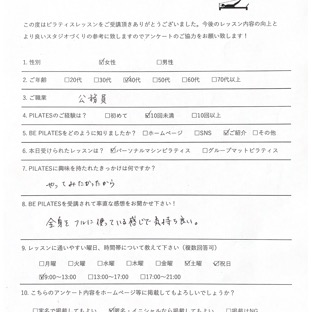 この度はピラティスレッスンをご受講頂きありがとうございました。今後のレッスン内容の向上と
より良いスタジオづくりの参考に致しますのでアンケートのご協力をお願い致します！
1. 性別　☑女性　□男性
2. ご年齢　□20代　□30代　☑40代　□50代　□60代　□70代以上
3. ご職業　公務員
4. PILATESのご経験は？　□初めて　☑10回未満　□10回以上
5. BE PILATESをどのように知りましたか？　□ホームページ　□SNS　☑ご紹介　□その他
6. 本日受けられたレッスンは？　☑パーソナルマシンピラティス　□グループマットピラティス
7. PILATESに興味を持たれたきっかけは何ですか？
やってみたかったから
8. BE PILATESを受講されて率直な感想をお聞かせ下さい！
全身をフルに使っている感じで気持ち良い。
9. レッスンに通いやすい曜日、時間帯について教えて下さい（複数回答可）
□月曜　□火曜　□水曜　□木曜　□金曜　☑土曜　☑祝日
☑9:00～13:00　□13:00～17:00　□17:00～21:00
10. こちらのアンケート内容をホームページ等に掲載してもよろしいでしょうか？
□実名で掲載してもよい　☑匿名・イニシャルなら掲載してもよい　□掲載はNG